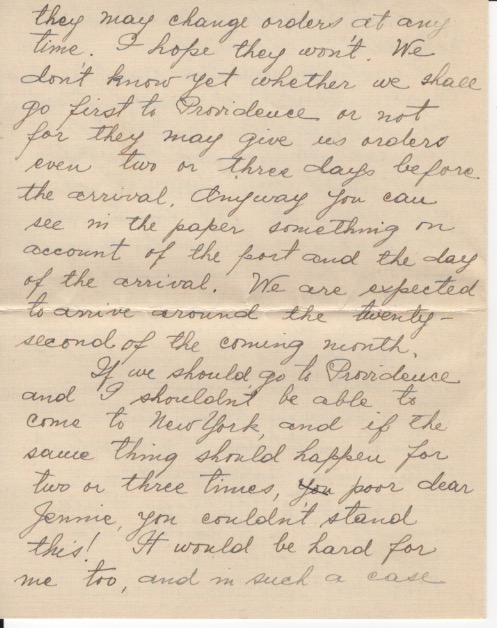 they may change orders at any
time. I hope they won't. We
don't know yet whether we shall
go first to Providence or not
for they may give us orders
even two or three days before
the arrival. Anyway you can
see in the paper something on
account of the port and the day
of the arrival. We are expected
to arrive around the twenty-
second of the coming month.
If we should go to Providence
and I shouldn't be able to
come to New York, and if the
same thing should happen for
two or three times, you poor dear
Jennie, you couldn't stand
this! It would be hard for
me too, and in such a case